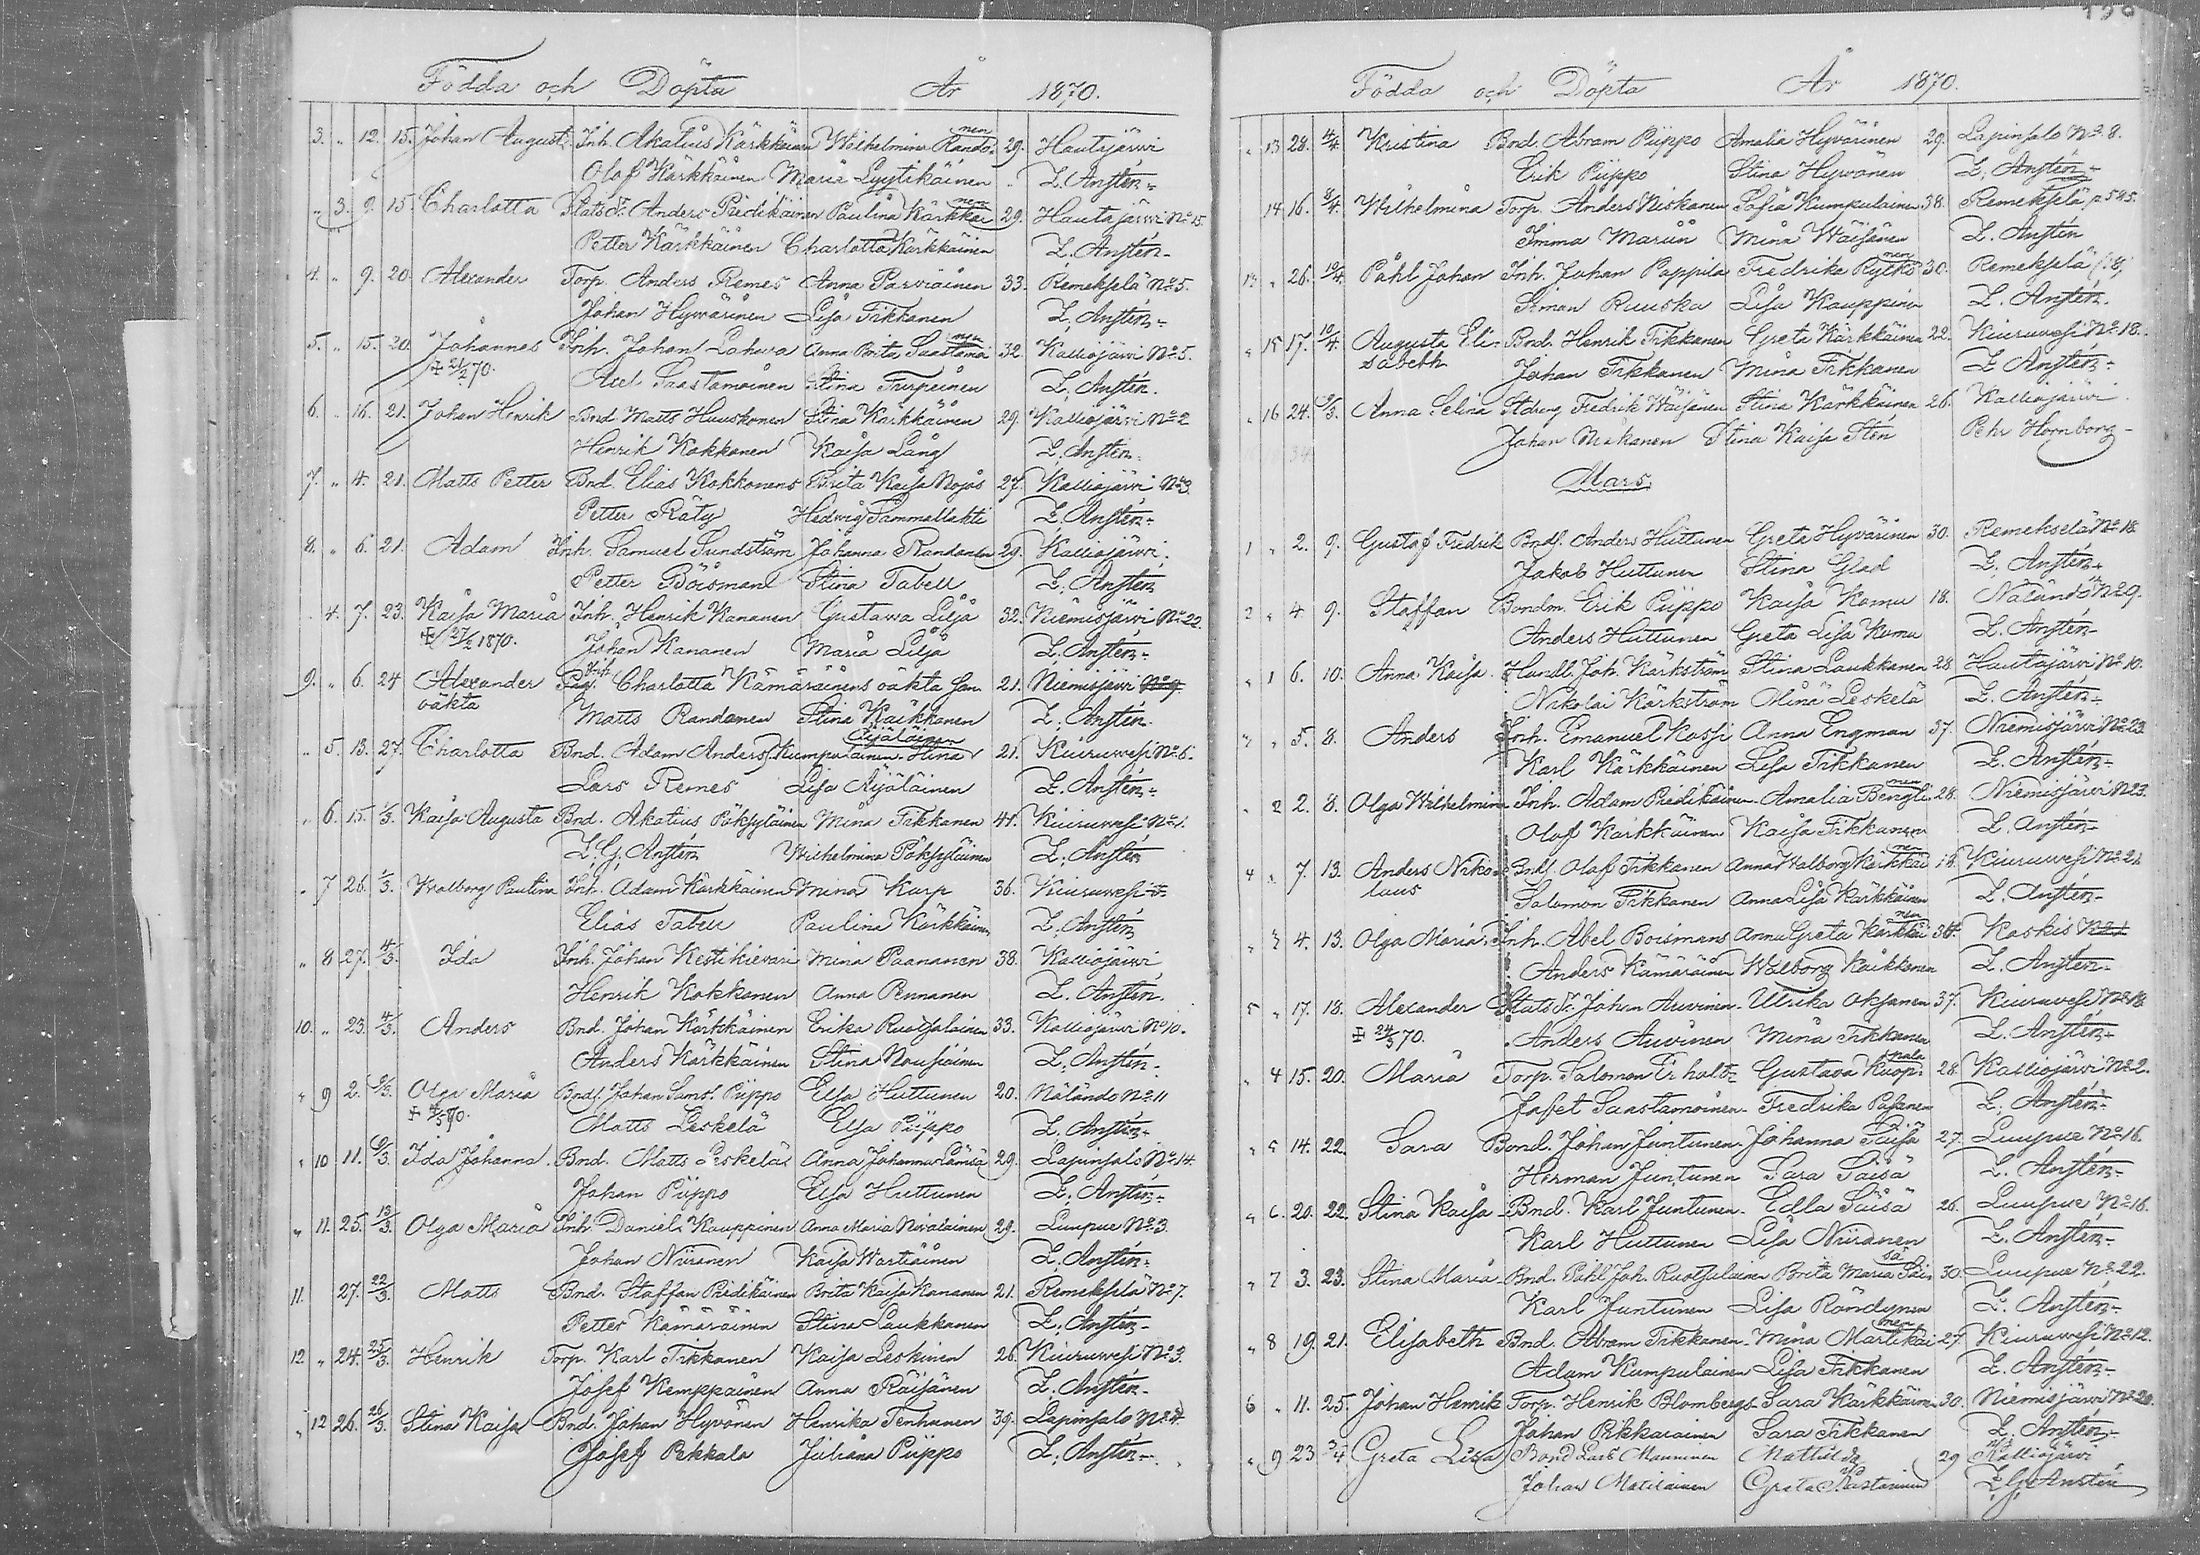 Födda och Döpta År 1870.
3. " 12. 15. Johan August Inh. Akatius Kärkkäinen Wilhelmina Rando-nen 29. Hautajärwi
Olof Kärkkäinen Maria Lyytikäinen L. Anstén
" 3. 9. 15. Charlotta Statsdr. Anders Pridikäinen Paulina Kärkkäi-nen 29. Hautajärwi No 15.
Petter Kärkkäinen Charlotta Kärkkäinen L. Anstén
4. " 9. 20. Alexander Torp. Anders Remes Anna Parviainen 33. Remekselä No 5.
Johan Hyvärinen Lisa Tikkanen L. Anstén
5. " 15. 20. Johannes Inh. Johan Lahwa Anna Brita Saastamoi-nen 32. Kalliojärwi No 5.
+ 21/2 70. Axel Saastamoinen Stina Turpeinen L. Anstén.
6. " 16. 21. Johan Henrik Bnd. Matts Huuskonen Stina Kärkkäinen 29. Kalliojärwi No 2
Henrik Kokkonen Kaisa Lång L. Anstén.
7. " 4. 21. Matts Petter Bnd. Elias Kokkonens Brita Kaisa Nojos 27. Kalliojärwi No 3.
Petter Räty Hedwig Sammallahti L. Anstén
8. " 6. 21. Adam Inh. Samuel Sundström Johanna Randanen 29. Kalliojärwi.
Petter Böisman Stina Tabell L. Anstén
" 4. 7. 23. Kaisa Maria Inh. Henrik Kananen Gustawa Lilja 32. Niemisjärwi No 22.
+ 27/2 1870. Johan Kananen Maria Lilja L. Anstén
9. " 6. 24 Alexander Pig. Charlotta Kämäräinens oäkta son 21. Niemisjärwi No 9.
oäkta Matts Randanen Stina Kaikkonen L. Anstén.
" 5. 13. 27. Charlotta Bnd. Adam Anders. Kumpulainen Stina Äijäläinen 21. Kiuruwesi No 6.
Lars Remes Lisa Äijäläinen L. Anstén
" 6. 15. 1/3. Kaisa Augusta Bnd. Akatius Pöksyläinen Mina Tikkanen 41. Kiuruwesi No 1.
L. G. Anstén Wilhelmina Pöksyläinen L. Anstén
" 7 26. 1/3. Walborg Paulina Inh. Adam Kärkkäinen Mina Karp 36. Kiuruwesi
Elias Tabell Paulina Kärkkäinen L. Anstén
" 8 27. 4/3. Ida Inh. Johan Kestikievari Mina Paananen 38. Kalliojärwi
Henrik Kokkonen Anna Pennanen L. Anstén.
10. " 23. 4/3. Anders Bnd. Johan Kärkkäinen Erika Ruotsalainen 33. Kalliojärwi No 10.
Anders Kärkkäinen Stina Nousiainen L. Anstén.
" 9 2. Olga Maria Bnds. Johan Saml. Piippo Elsa Huttunen 20. Näländö No 11
Matts Leskelä Elsa Piippo L. Anstén
" 10 11. Ida Johanna. Bnd. Matts Leskelä Anna Johanna Lämsä 29. Lapinsalo No 14.
Johan Piippo Elsa Huttunen L. Anstén
" 11. 25. 13/3. Olga Maria Inh. Daniel Kauppinen Anna Maria Nivalainen 29. Luupue No 3.
Johan Niiranen Kaisa Wartiainen L. Anstén
11. 27. 22/3. Matts Bnd. Staffan Pridikäinen Brita Kaisa Kananen 21. Remekselä No 7.
Petter Kämäräinen Stina Laukkanen L. Anstén
12 " 24. 25/3. Henrik Torp. Karl Tikkanen Kaisa Leskinen 26. Kiuruwesi No 3.
Josef Kemppainen Anna Räisänen L. Anstén
" 12 26. 26/3. Stina Kaisa Bnd. Johan Hyvönen Henrika Tenhunen 39. Lapinsalo No 4.
Josef Pekkala Juliana Piippo L. Anstén
Födda och Döpta År 1870.
" 13 28. 4/4. Kristina Bnd. Abram Piippo Amalia Hyvärinen 29. Lapinsalo No 8.
Erik Piippo Stina Hyvönen L. Anstén
14 16. 8/4. Wilhelmina Torp. Anders Niskanen Sofia Kumpulainen 38. Remekselä
Imma Marun Mina Wäisänen L. Anstén
13 " 26. 10/4. Påhl Johan Inh. Johan Pappila Fredrika Rytkö-nen 30. Remekselä
Siman Ruuska Lisa Kauppinen L. Anstén.
" 15 17. 10/4. Augusta Eli- Bnd. Henrik Tikkanen Greta Kärkkäinen 22. Kiuruwesi No 18.
sabeth Johan Tikkanen Mina Tikkanen L. Anstén
" 16 24. Anna Selina Fredrik Wäisänen Stina Kärkkäinen 26. Kalliojärwi
Johan Miskanen Stina Kaisa Stén Petr Hornborg
Mars.
1 " 2. 9. Gustaf Fredrik Bnds. Anders Huttunen Greta Hyvärinen 30. Remekselä No 18.
Jakob Huttunen Stina Glad L. Anstén
2 " 4 9. Staffan Bondm. Erik Piippo Kaisa Komu 18. Näländö No 9.
Anders Huttunen Greta Lisa Komu L. Anstén
" 1 6. 10. Anna Kaisa Handl. Joh. Kärkström Stina Laukkanen 28 Hautajärwi No 10.
Nikolai Kärkström Mina Leskelä L. Anstén
3 " 5. 8. Anders Inh. Emanuel Kossi Anna Engman 37. Niemisjärwi No 23.
Karl Kärkkäinen Lisa Tikkanen L. Anstén
" 2 2. 8. Olga Wilhelmina Inh. Adam Pridikäinen Amalia Bengli-nen 28. Niemisjärwi No 23.
Olof Kärkkäinen Kaisa Tikkanen L. Anstén
4 " 7. 13. Anders Niko- Bnds. Olof Tikkanen Anna Walborg Kärkkäi-nen 18. Kiuruwesi No 21
laus Salomon Tikkanen Anna Lisa Kärkkäinen L. Anstén
" 3 4. 13. Olga Maria Inh. Abel Boismans Anna Greta Kärkkäi-nen 34. Koskis No 1
Anders Kämäräinen Walborg Kaikkonen L. Anstén
5 " 17. 18. Alexander Statsdr. Johan Auvinen Ulrika Oksanen 37. Kiuruwesi No 18
+ 24/3 70. Anders Auvinen Mina Tikkanen L. Anstén
" 4 15. 20. Maria Torp. Salomon Gustava Kuop-pala 28. Kalliojärwi No 2.
Jafet Saastamoinen Fredrika Pasanen L. Anstén
" 5 14. 22. Sara Bond. Johan Juntunen Johanna Säisä 27. Luupue No 16.
Herman Juntunen Sara Säisä L. Anstén
" 6. 20. 22. Stina Kaisa Bnd. Karl Juntunen Edla Säisä 26. Luupue No 16.
Karl Huttunen Lisa Niiranen L. Anstén
" 7 3. 23. Stina Maria Bnd. Påhl Joh. Ruotsalainen Brita Maria Säi-sä 30. Luupue No 22.
Karl Juntunen Lisa Röndynen L. Anstén
" 8 19. 21. Elisabeth Bnd. Abram Tikkanen Mina Martikai-nen 27. Kiuruwesi No 12.
Adam Kumpulainen Lisa Tikkanen L. Anstén
6 " 11. 25. Johan Henrik Torp. Henrik Blombergs Sara Kärkkäinen 30. Niemisjärwi No 20.
Johan Pikkarainen Sara Tikkanen L. Anstén
" 9 23 Greta Lisa Bond Lars Manninen Mathilda 29 Kalliojärvi
Johan Matilainen Greta L G Anstén